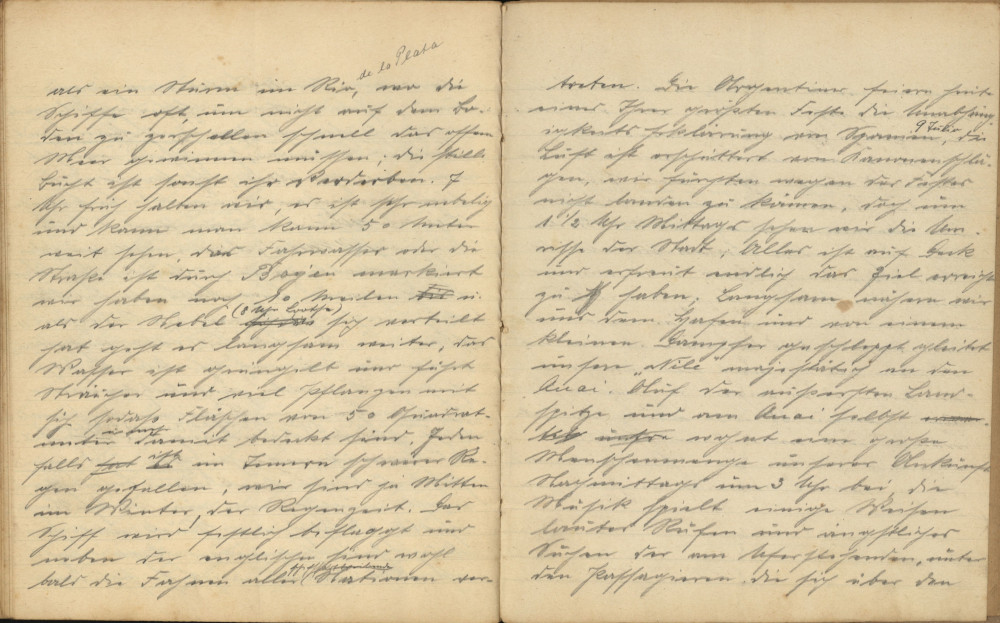 de la Plata
als ein Sturm im Rio, wo die
Schiffe oft, um nicht auf dem Bo-
den zu zerschellen schnell das offene
Meer gewinnen müssen; die stille
Bucht ist sonst ihr Verderben. 7
Uhr früh halten wir, es ist sehr nebelig
und kann man kaum 50 Meter
weit sehen, das Fahrwasser oder die
Straße ist durch Bogen markiert
wir haben noch 10 Meilen u.
(8 Uhr Lootse)
als der Nebel sich verteilt
hat geht es langsam weiter, das
Wasser ist grüngelb und führt
Sträucher und viel Pflanzen mit
sich sodass Flächen von 50 Quadrat-
meter damit bedeckt sind. Jeden
falls ist im Innern schwerer Re-
gen gefallen, wir sind ja Mitten
im Winter, der Regenzeit. Das
Schiff wird festlich beflaggt und
neben der englischen sind wohl
bald die Fahnen aller Nationen ver-
treten. Die Argentiner feiern heute
eines Ihrer größten Feste die Unabhäng
9 Juli
igkeits Erklärung von Spanien, die
Luft ist erschüttert von Kanonenschlä-
gen, wir fürchten wegen des Festes
nicht landen zu können, doch um
1 1/2 Uhr Mittags sehen wir die Um-
risse der Stadt; Alles ist auf Deck
und erfreut endlich das Ziel erreicht
zu haben; Langsam nähern wir
uns dem Hafen und von einem
kleinen Dampfer geschleppt gleitet
unsere „Nile" majestätisch an den
Quai. Auf der äussersten Land-
spitze und am Quai selbst
wohnt eine große
Menschenmenge unserer Ankunft
Nachmittags um 3 Uhr bei die
Musik spielt einige Weisen
lautes Rufen und ängstliches
Suchen der am Ufer stehenden, unter
den Passagieren die sich über den